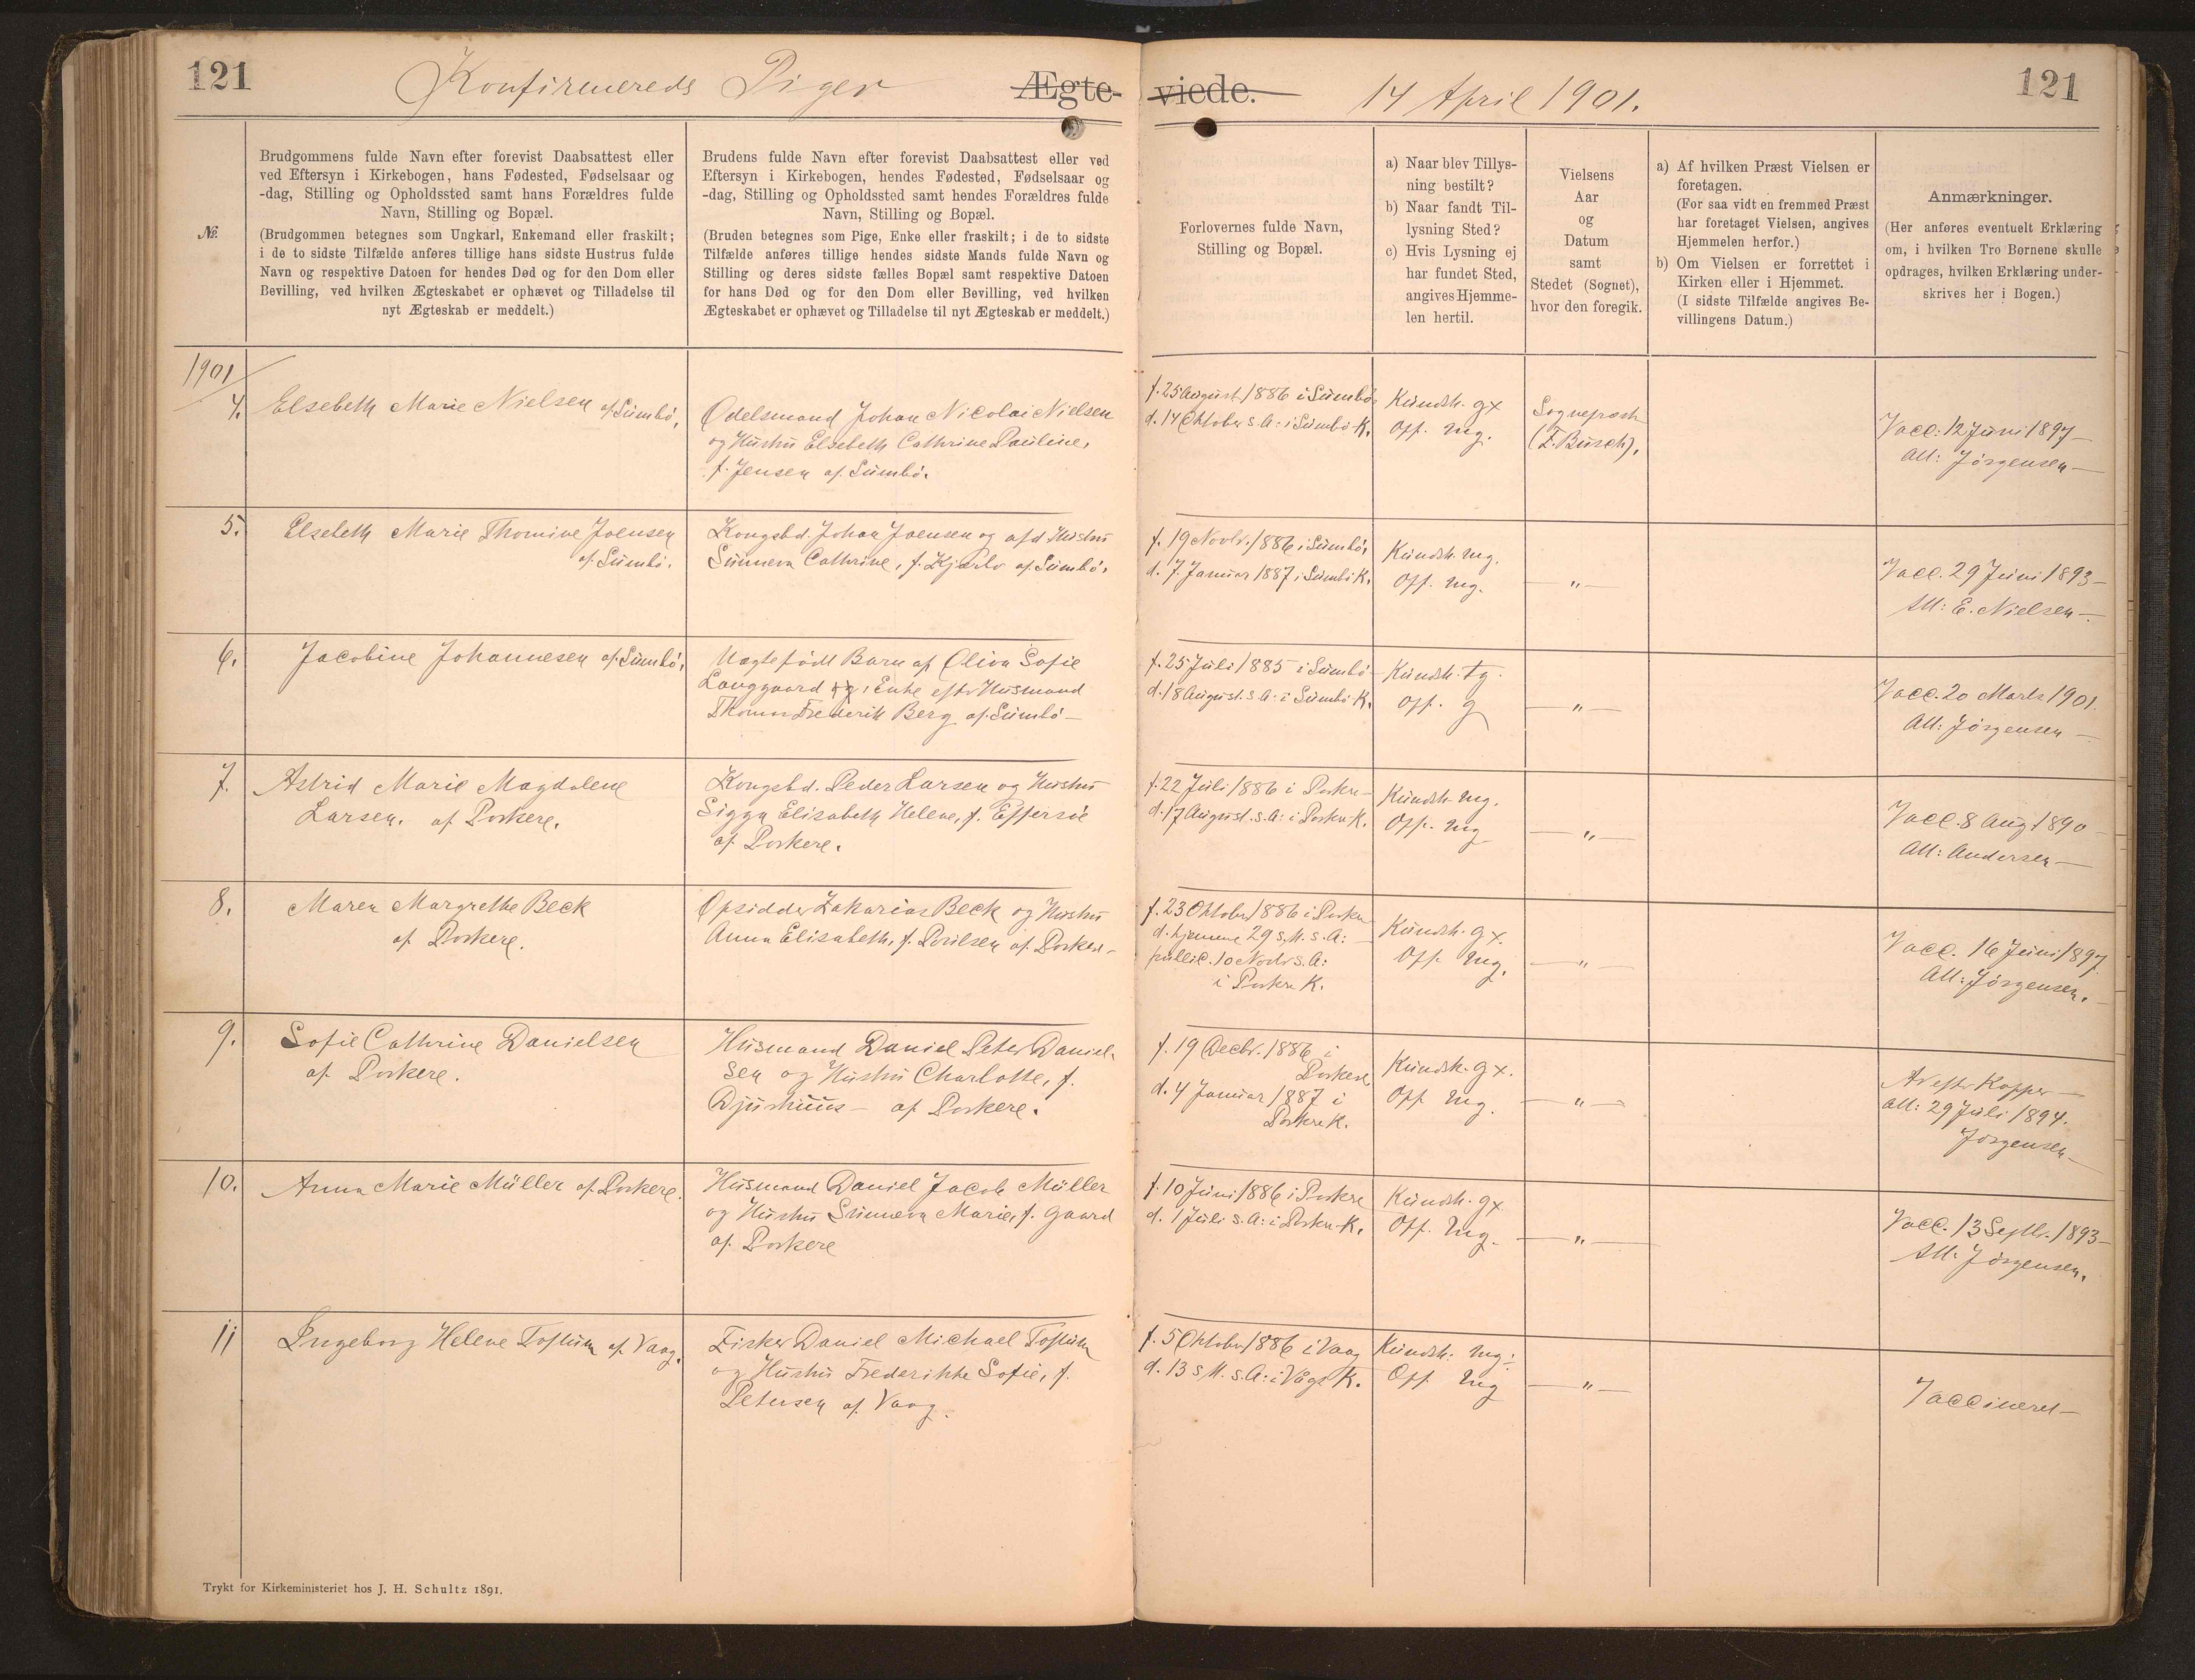 121
Konfirmereds Piger
Ægte-
viede.
14 April 1901.
121
№.
Brudgommens fulde Navn efter forevist Daabsattest eller
ved Eftersyn i Kirkebogen, hans Fødested, Fødselsaar og
-dag, Stilling og Opholdssted samt hans Forældres fulde
Navn, Stilling og Bopæl.
(Brudgommen betegnes som Ungkarl, Enkemand eller fraskilt;
i de to sidste Tilfælde anføres tillige hans sidste Hustrus fulde
Navn og respektive Datoen for hendes Død og for den Dom eller
Bevilling, ved hvilken Ægteskabet er ophævet og Tilladelse til
nyt Ægteskab er meddelt.)
Brudens fulde Navn efter forevist Daabsattest eller ved
Eftersyn i Kirkebogen, hendes Fødested, Fødselsaar og
-dag, Stilling og Opholdssted samt hendes Forældres fulde
Navn, Stilling og Bopæl.
(Bruden betegnes som Pige, Enke eller fraskilt; i de to sidste
Tilfælde anføres tillige hendes sidste Mands fulde Navn og
Stilling og deres sidste fælles Bopæl samt respektive Datoen
for hans Død og for den Dom eller Bevilling, ved hvilken
Ægteskabet er ophævet og Tilladelse til nyt Ægteskab er meddelt.)
Forlovernes fulde Navn,
Stilling og Bopæl.
a) Naar blev Tillys-
ning bestilt?
b) Naar fandt Til-
lysning Sted?
c) Hvis Lysning ej
har fundet Sted,
angives Hjemme-
len hertil.
Vielsens
Aar
og
Datum
samt
Stedet (Sognet),
hvor den foregik.
a) Af hvilken Præst Vielsen er
foretagen.
(For saa vidt en fremmed Præst
har foretaget Vielsen, angives
Hjemmelen herfor.)
b) Om Vielsen er forrettet i
Kirken eller i Hjemmet.
(I sidste Tilfælde angives Be-
villingens Datum.)
Anmærkninger.
(Her anføres eventuelt Erklæring
om, i hvilken Tro Børnene skulle
opdrages, hvilken Erklæring under-
skrives her i Bogen.)
1901
4. Elsebeth Marie Nielsen af Sumbö,
Odelsmand Johan Nicolai Nielsen
og Hustru Elsebeth Cathrine Pauline,
f. Jensen af Sumbö.
f. 25 August 1886 i Sumbö
d. 14 Oktober s. A: i Sumbö K.
Kundsk. gx
Opf. mg.
Sognepræst
(F. Busch),
Vacc: 12 Juni 1897
Att: Jörgensen
5. Elsebeth Marie Thomine Joensen
af Sumbö.
Kongsbd. Johan Joensen og afd Hustru
Sunneva Cathrine, f. Kjærbo af Sumbö.
f. 19 Novbr. 1886 i Sumbö,
d. 7. Januar 1887 i Sumbö K.
Kundsk. mg.
Opf. mg.
— " —
Vacc. 29 Juni 1893
Att: E. Nielsen
6. Jacobine Johannesen af Sumbö,
Uægtefödt Barn af Oliva Sofie
Langgaard og, Enke eftr Husmand
Thomas Frederik Berg af Sumbö
f. 25 Juli 1885 i Sumbö
d. 18 August s. A: i Sumbö K.
Kundsk. tg.
Opf. g
— " —
Vacc. 20 Marts 1901.
Att: Jörgensen
7. Astrid Marie Magdalene
Larsen. af Porkere.
Kongsbd. Peder Larsen og Hustru
Sigga Elisabeth Helene, f. Effersöe
af Porkere.
f. 22 Juli 1886 i Porkere
d. 17 August. s. A: i Porkere K.
Kundsk. mg.
Opf. mg
— " —
Vacc. 8 Aug 1890
Att: Andersen
8. Maren Margrethe Beck
af Porkere.
Opsidder Zakarias Beck og Hustru
Anna Elisabeth, f. Poulsen af Porkere
f. 23 Oktober 1886 i Porkere
d. hjemme 29 s. M. s. A:
public. 10 Novbr s. A:
i Porkere K.
Kundsk. gx.
Opf. mg.
— " —
Vacc. 16 Juni 1897
Att: Jörgensen.
9. Sofie Cathrine Danielsen
af Porkere.
Husmand Daniel Peter Daniel-
sen og Hustru Charlotte, f.
Djurhuus — af Porkere.
f. 19 Decbr. 1886 i
Porkere
d. 4 Januar 1887 i
Porkere K.
Kundsk. gx.
Opf. mg.
— " —
Ar eftr Kopper
Att: 29 Juli 1894.
Jörgensen
10. Anna Marie Müller af Porkere.
Husmand Daniel Jacob Müller
og Hustru Sunneva Marie, f. Gaard
af Porkere
f. 10 Juni 1886 i Porkere
d. 1 Juli s. A: i Porkere K.
Kundsk. gx
Opf. mg.
— " —
Vacc. 13 Septbr. 1893
Att: Jörgensen.
11 Ingeborg Helene Toftum af Vaag.
Fisker Daniel Michael Toftum
og Hustru Frederikke Sofie, f.
Petersen af Vaag.
f. 5 Oktober 1886 i Vaag
d. 13 s. M. s. A: i Vågs K.
Kundsk: mg:
Opf. mg
— " —
Vaccineret
Trykt for Kirkeministeriet hos J. H. Schultz 1891.